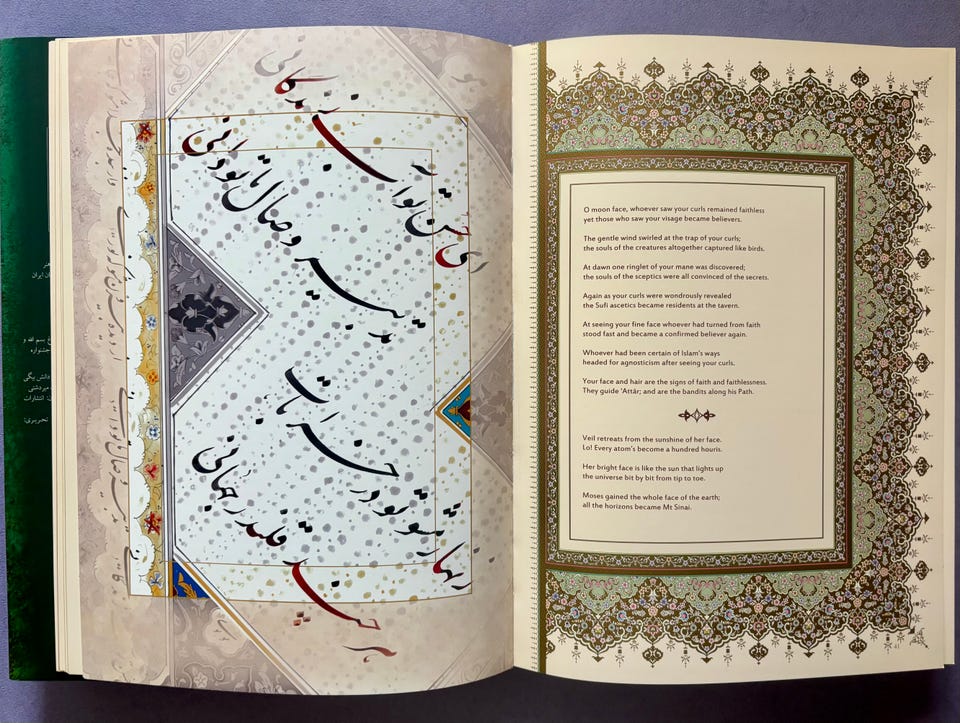 ای حسن تو آب زندگانی
تدبیر وصال ما تو دانی
زنهار مشو تو در خرابات
هر چند قلندر جهانی
ایران
بسم الله و
جشنواره
دانش بیگی
میردشتی
انتشارات
O moon face, whoever saw your curls remained faithless
yet those who saw your visage became believers.
The gentle wind swirled at the trap of your curls;
the souls of the creatures altogether captured like birds.
At dawn one ringlet of your mane was discovered;
the souls of the sceptics were all convinced of the secrets.
Again as your curls were wondrously revealed
the Sufi ascetics became residents at the tavern.
At seeing your fine face whoever had turned from faith
stood fast and became a confirmed believer again.
Whoever had been certain of Islam's ways
headed for agnosticism after seeing your curls.
Your face and hair are the signs of faith and faithlessness.
They guide ‘Attār; and are the bandits along his Path.
Veil retreats from the sunshine of her face.
Lo! Every atom's become a hundred houris.
Her bright face is like the sun that lights up
the universe bit by bit from tip to toe.
Moses gained the whole face of the earth;
all the horizons became Mt Sinai.